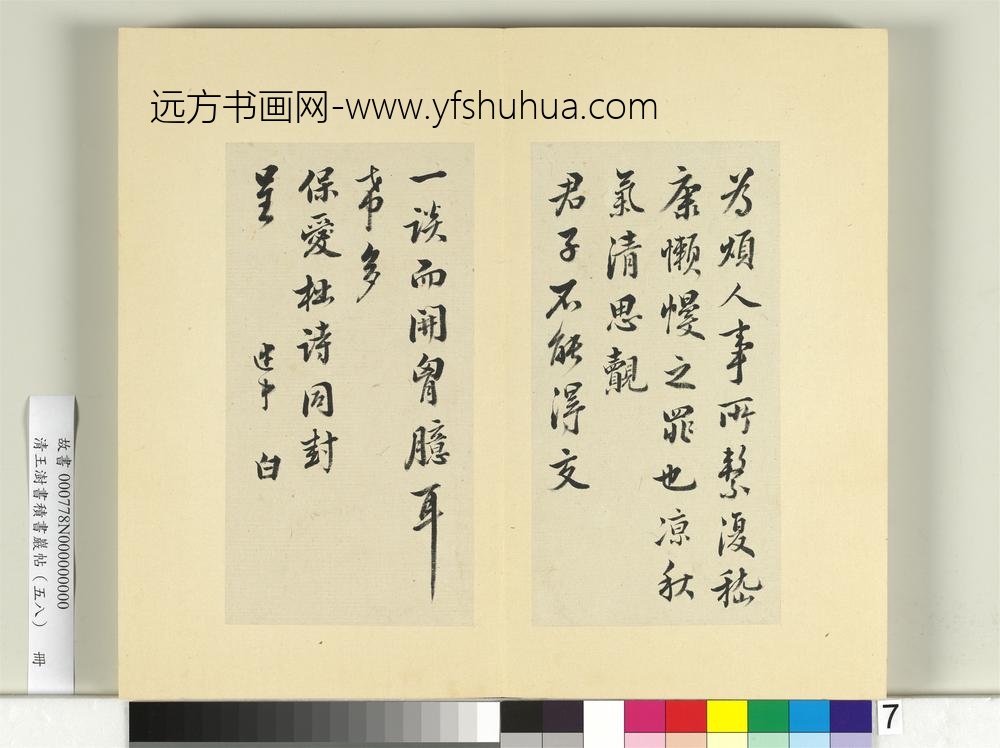 远方书画网-www.yfshuhua.com
為煩人事所繫復嵇
康懶慢之罪也凉秋
氣清思觀
君子不能得交
一談而開胷臆耳
希多
保愛拙詩同封
呈 白
故書 000778N000000000
清王澍書積書巖帖(五八) 冊
7